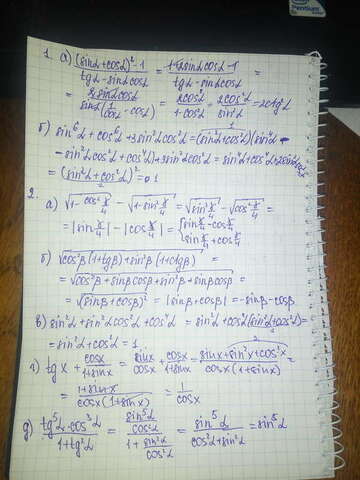 Pentium
1. а) (sinα+cosα)²-1 / tgα-sinαcosα = 1+2sinαcosα-1 / tgα-sinαcosα =
= 2sinαcosα / sinα(1/cosα - cosα) = 2cosα / 1-cos²α = 2cos²α / sin²α = 2ctg²α
б) sin⁶α+cos⁶α+3sin²αcos²α=(sin²α+cos²α)(sin⁴α-
-sin²αcos²α+cos⁴α)+3sin²αcos²α= sin⁴α+cos⁴α+2sin²αcos²α
= (sin²α+cos²α)² = 1
2.
а) √1-cos²π/4 - √1-sin²π/4 = √sin²π/4 - √cos²π/4 =
= |sin π/4| - |cos π/4| = { sin π/4 - cos π/4
sin π/4 + cos π/4
б) √cos²β(1+tgβ)+sin²β(1+ctgβ) =
= √cos²β+sinβcosβ+sin²β+sinβcosβ =
= √(sinβ+cosβ)² = |sinβ+cosβ| = -sinβ-cosβ
в) sin²α+sin²αcos²α+cos⁴α = sin²α+cos²α(sin²α+cos²α)=
= sin²α+cos²α = 1
г) tgx + cosx / 1+sinx = sinx / cosx + cosx / 1+sinx = sinx+sin²x+cos²x / cosx(1+sinx) =
= 1+sinx / cosx(1+sinx) = 1 / cosx
д) tg⁵α·cos³α / 1+tg²α = sin⁵α / cos²α / 1+sin²α / cos²α = sin⁵α / cos²α+sin²α = sin⁵α